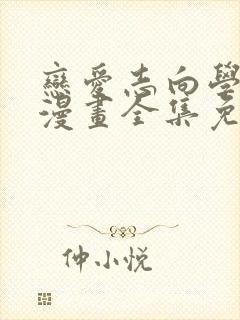 戀愛志向學
漫畫全集免
仲小悦